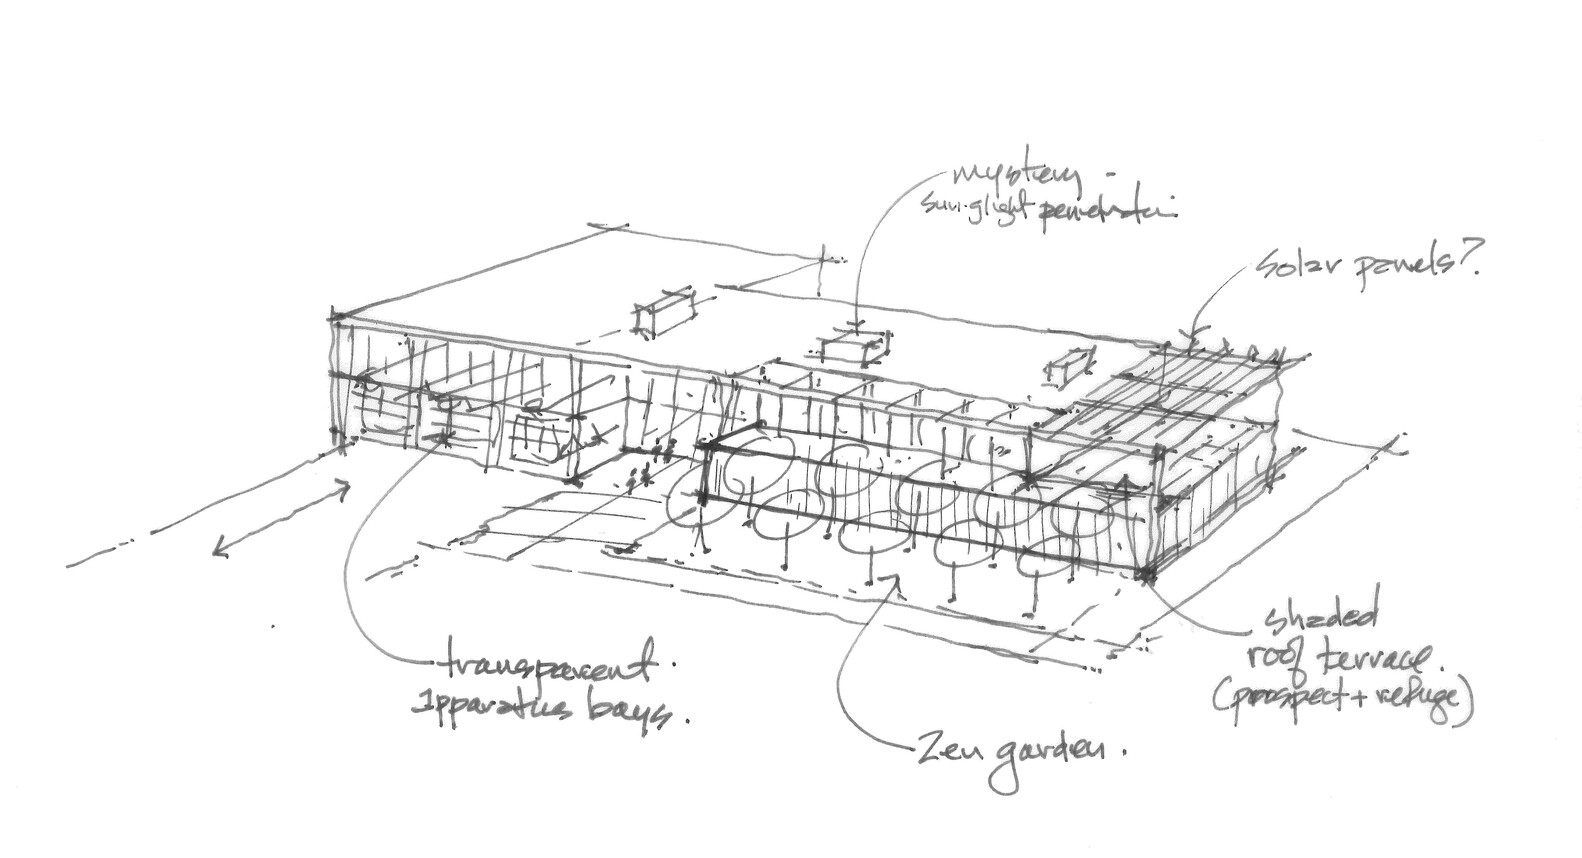 mystery -
sun-light penetration
solar panels?
shaded
roof terrace.
(prospect + refuge)
transparent.
apparatus bays.
Zen garden.